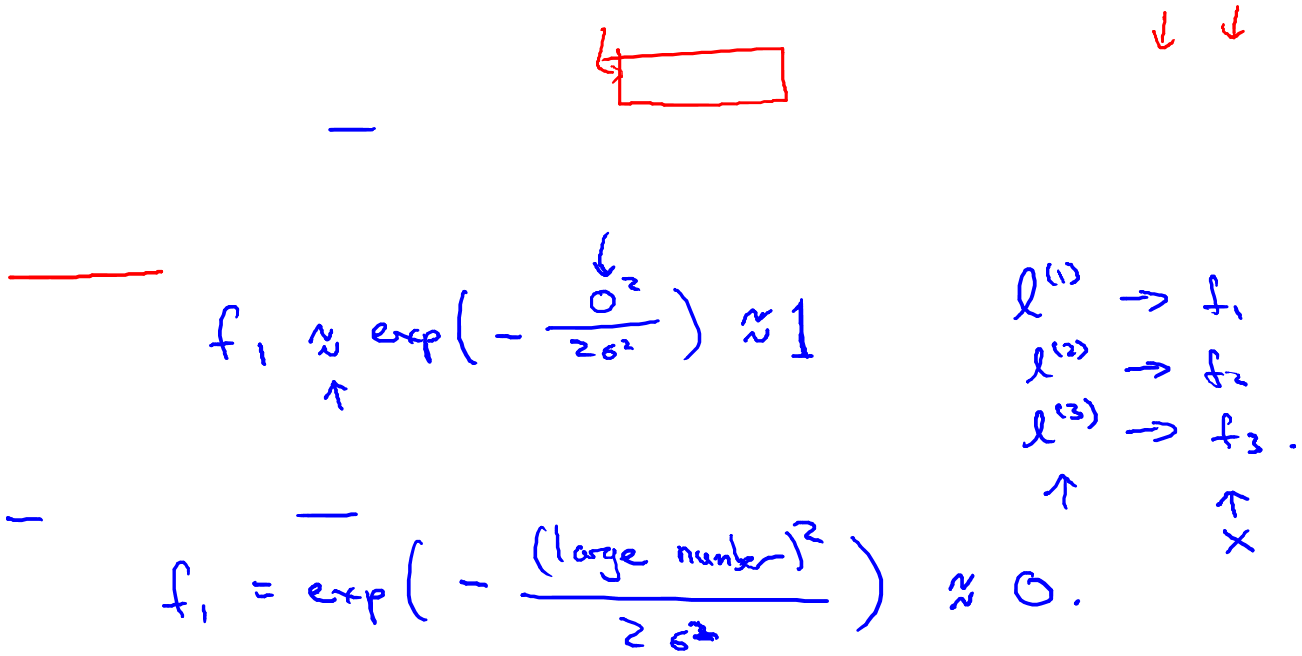 f₁ ≈ exp(- 0² / 2σ²) ≈ 1
l⁽¹⁾ → f₁
l⁽²⁾ → f₂
l⁽³⁾ → f₃.
x
f₁ = exp(- (large number)² / 2σ²) ≈ 0.